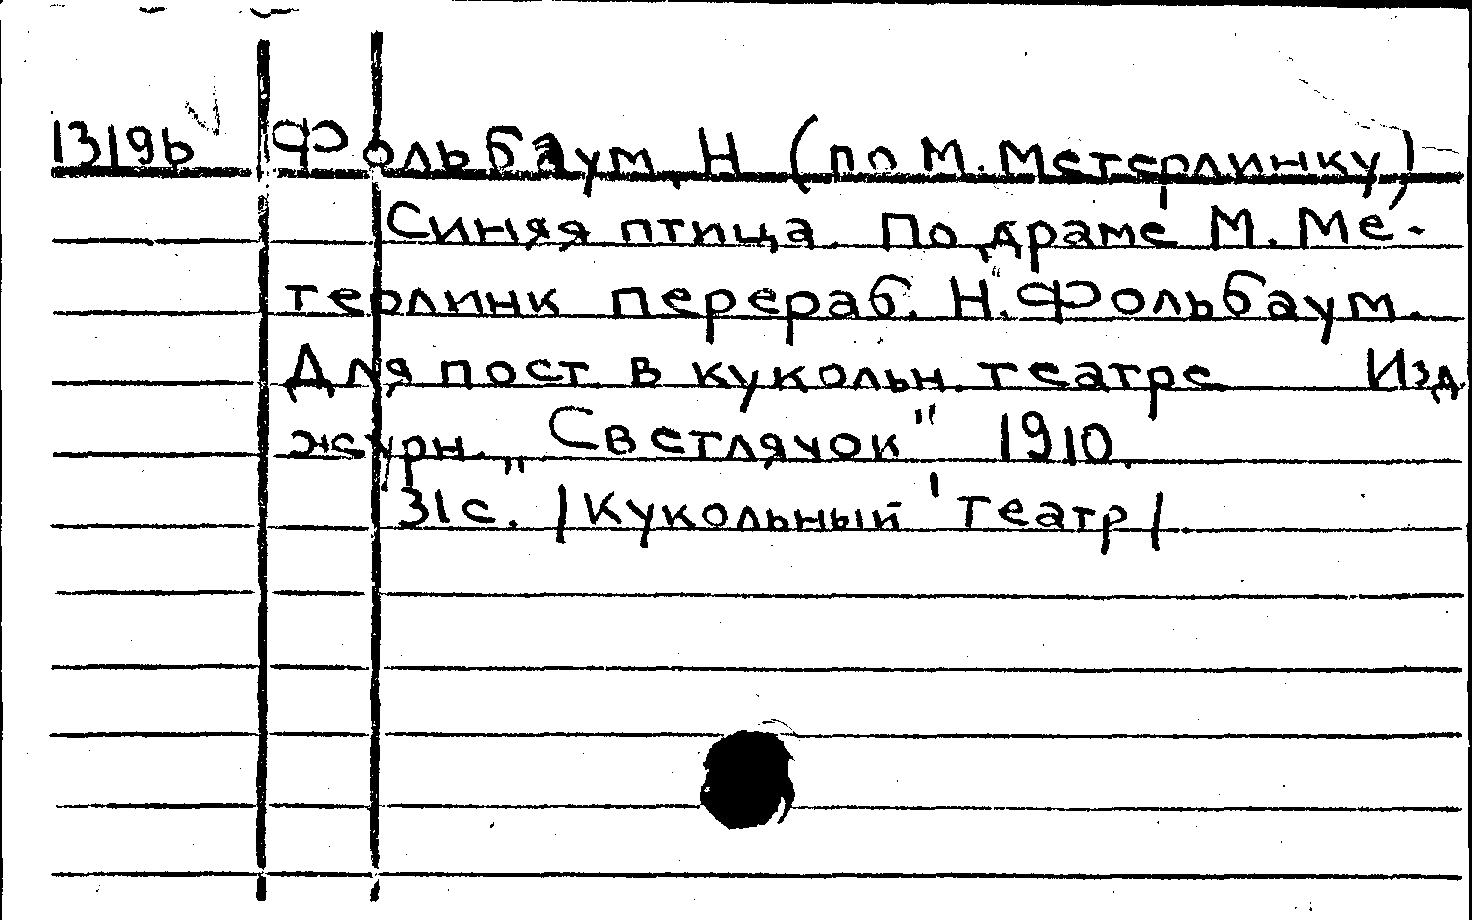 1319ь Фольбаум, Н (по М. Метерлинку)
Синяя птица. По драме М. Ме-
терлинк перераб. Н. Фольбаум.
Для пост. в кукольн. театре Изд
журн. „Светлячок" 1910.
31с. /Кукольный театр/